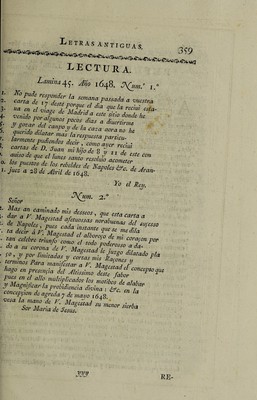 LETRAS ANTIGUAS.
359
LECTURA.
Lamina 45. Año 1648. Num.º 1.º
1. No pude responder la semana passada a vuestra
carta de 17 deste porque el dia que la recivi esta-
va en el viage de Madrid a este sitio donde he
venido por algunos pocos dias a divertirme
y gozar del campo y de la caza aora no he
querido dilatar mas la respuesta particu-
larmente pudiendos decir, como ayer recivi
cartas de D. Juan mi hijo de 8 y 11 de este con
aviso de que el lunes santo resolvió acometer
los puestos de los rebeldes de Napoles &c. de Aran-
juez a 28 de Abril de 1648.
Yo el Rey.
Num. 2.º
Señor
Mas an caminado mis desseos, que esta carta a
dar a V. Magestad afetuossas norabuenas del sucesso
de Napoles, pues cada instante que se me dila
ta decir á V. Magestad el alboroço de mi coraçon por
tan celebre triunfo como el todo poderoso a da-
do a su corona de V. Magestad le juzgo dilatado pla
ço, y por limitadas y cortas mis Raçones y
terminos Para manifestar a V. Magestad el concepto que
hago en presencia del Altissimo deste fabor
pues en el allo multiplicados los motibos de alabar
y Magnificar la probidencia divina: &c. en la
concepcion de agreda 7 de mayo 1648.
vesa la mano de V. Magestad su menor sierba
Sor Maria de Jesus.
RE-